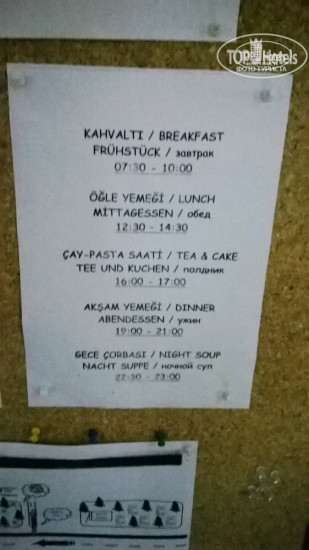 TOPHotels
ФОТО ТУРИСТА
KAHVALTI / BREAKFAST
FRÜHSTÜCK / завтрак
07:30 - 10:00
ÖĞLE YEMEĞİ / LUNCH
MİTTAGESSEN / обед
12:30 - 14:30
ÇAY-PASTA SAATİ / TEA & CAKE
TEE UND KUCHEN / полдник
16:00 - 17:00
AKŞAM YEMEĞİ / DINNER
ABENDESSEN / ужин
19:00 - 21:00
GECE ÇORBASI / NIGHT SOUP
NACHT SUPPE / ночной суп
22:30 - 23:00